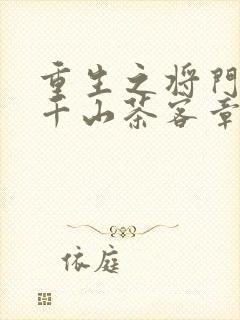 重生之将門
千山茶客章
依庭